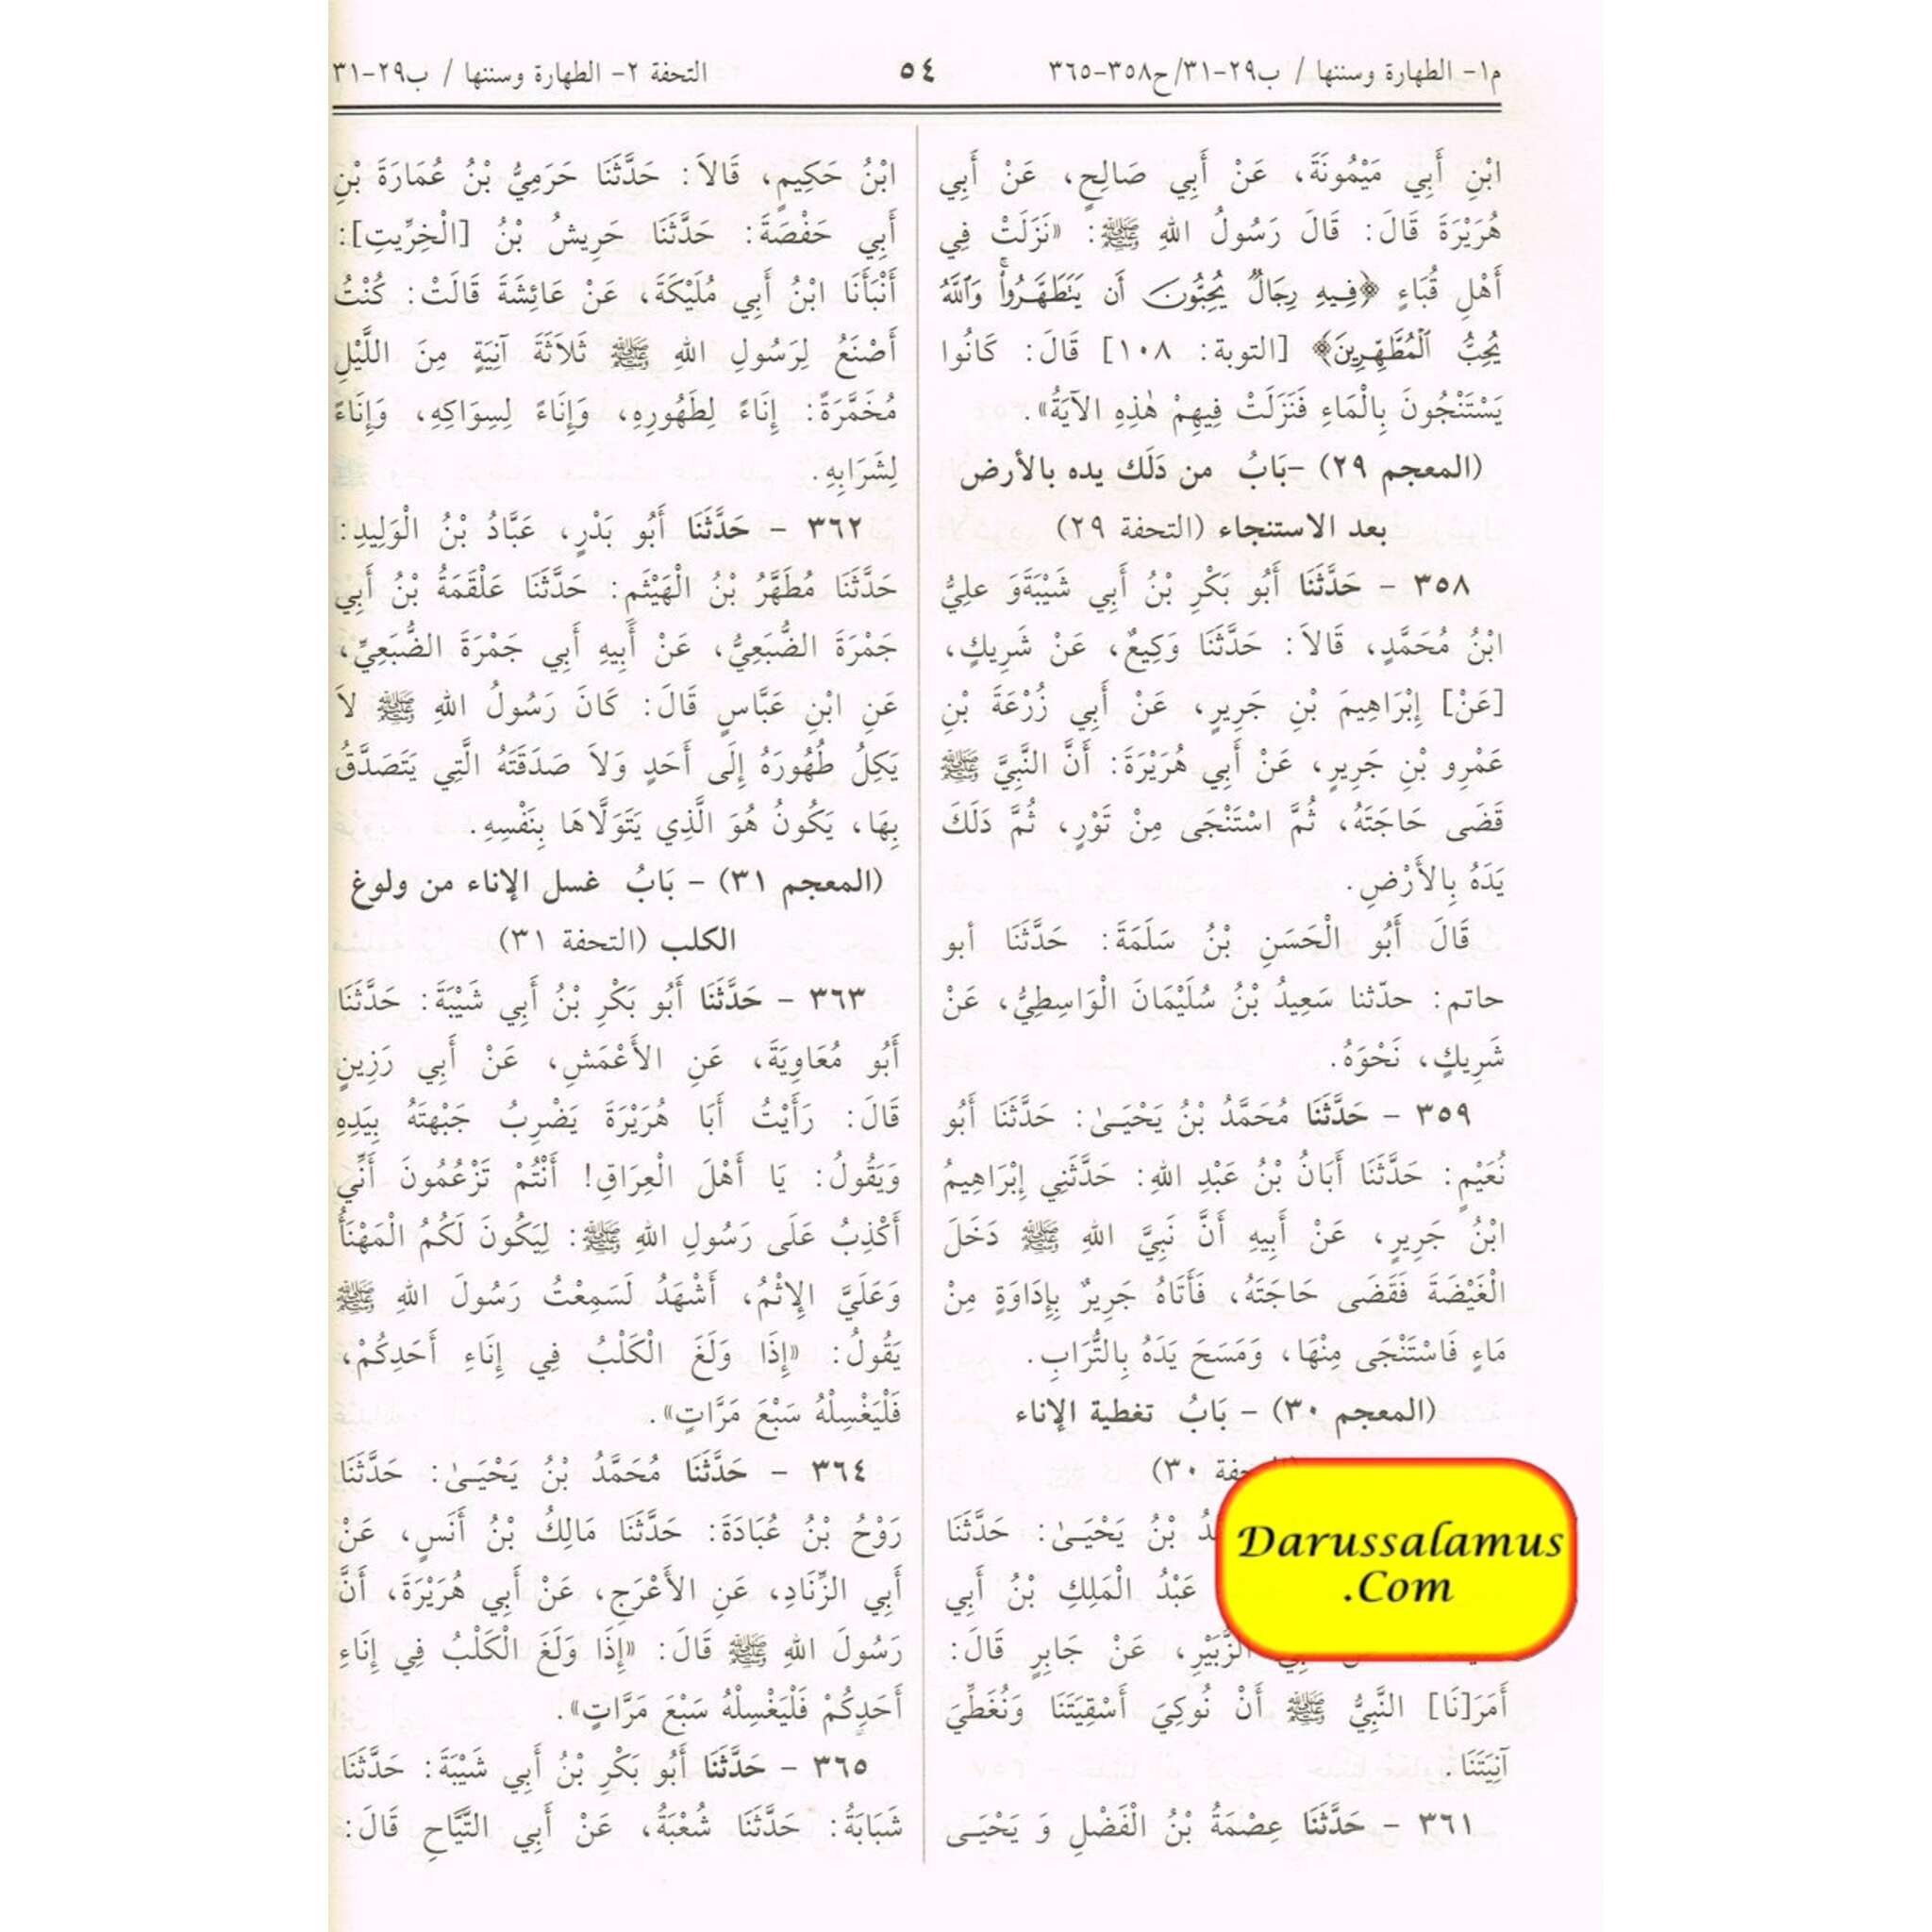 م١- الطهارة وسننها / ب٢٩-٣١/ح٣٥٨-٣٦٥
٥٤
التحفة ٢- الطهارة وسننها / ب٢٩-٣١
ابْنِ أَبِي مَيْمُونَةَ، عَنْ أَبِي صَالِحٍ، عَنْ أَبِي
هُرَيْرَةَ قَالَ: قَالَ رَسُولُ اللهِ ﷺ: «نَزَلَتْ فِي
أَهْلِ قُبَاءٍ ﴿فِيهِ رِجَالٌ يُحِبُّونَ أَن يَتَطَهَّرُواْ وَٱللَّهُ
يُحِبُّ ٱلْمُطَّهِّرِينَ﴾ [التوبة: ١٠٨] قَالَ: كَانُوا
يَسْتَنْجُونَ بِالْمَاءِ فَنَزَلَتْ فِيهِمْ هٰذِهِ الآيَةُ».
(المعجم ٢٩) -بَابُ من دَلَك يده بالأرض
بعد الاستنجاء (التحفة ٢٩)
٣٥٨ - حَدَّثَنَا أَبُو بَكْرِ بْنُ أَبِي شَيْبَةَوَ علِيُّ
ابْنُ مُحَمَّدٍ، قَالاَ: حَدَّثَنَا وَكِيعٌ، عَنْ شَرِيكٍ،
[عَنْ] إِبْرَاهِيمَ بْنِ جَرِيرٍ، عَنْ أَبِي زُرْعَةَ بْنِ
عَمْرِو بْنِ جَرِيرٍ، عَنْ أَبِي هُرَيْرَةَ: أَنَّ النَّبِيَّ ﷺ
قَضَى حَاجَتَهُ، ثُمَّ اسْتَنْجَى مِنْ تَوْرٍ، ثُمَّ دَلَكَ
يَدَهُ بِالأَرْضِ.
قَالَ أَبُو الْحَسَنِ بْنُ سَلَمَةَ: حَدَّثَنَا أبو
حاتم: حدّثنا سَعِيدُ بْنُ سُلَيْمَانَ الْوَاسِطِيُّ، عَنْ
شَرِيكٍ، نَحْوَهُ.
٣٥٩ - حَدَّثَنَا مُحَمَّدُ بْنُ يَحْيَىٰ: حَدَّثَنَا أَبُو
نُعَيْمٍ: حَدَّثَنَا أَبَانُ بْنُ عَبْدِ اللهِ: حَدَّثَنِي إِبْرَاهِيمُ
ابْنُ جَرِيرٍ، عَنْ أَبِيهِ أَنَّ نَبِيَّ اللهِ ﷺ دَخَلَ
الْغَيْضَةَ فَقَضَى حَاجَتَهُ، فَأَتَاهُ جَرِيرٌ بِإِدَاوَةٍ مِنْ
مَاءٍ فَاسْتَنْجَى مِنْهَا، وَمَسَحَ يَدَهُ بِالتُّرَابِ.
(المعجم ٣٠) - بَابُ تغطية الإناء
٣٠)
بْنُ يَحْيَىٰ: حَدَّثَنَا
عَبْدُ الْمَلِكِ بْنُ أَبِي
الزُّبَيْرِ، عَنْ جَابِرٍ قَالَ:
أَمَرَ[نَا] النَّبِيُّ ﷺ أَنْ نُوكِيَ أَسْقِيَتَنَا وَنُغَطِّيَ
آنِيَتَنَا.
٣٦١ - حَدَّثَنَا عِصْمَةُ بْنُ الْفَضْلِ وَ يَحْيَى
ابْنُ حَكِيمٍ، قَالاَ: حَدَّثَنَا حَرَمِيُّ بْنُ عُمَارَةَ بْنِ
أَبِي حَفْصَةَ: حَدَّثَنَا حَرِيشُ بْنُ [الْخِرِّيتِ]:
أَنْبَأَنَا ابْنُ أَبِي مُلَيْكَةَ، عَنْ عَائِشَةَ قَالَتْ: كُنْتُ
أَصْنَعُ لِرَسُولِ اللهِ ﷺ ثَلاَثَةَ آنِيَةٍ مِنَ اللَّيْلِ
مُخَمَّرَةً: إِنَاءً لِطَهُورِهِ، وَإِنَاءً لِسِوَاكِهِ، وَإِنَاءً
لِشَرَابِهِ.
٣٦٢ - حَدَّثَنَا أَبُو بَدْرٍ، عَبَّادُ بْنُ الْوَلِيدِ:
حَدَّثَنَا مُطَهَّرُ بْنُ الْهَيْثَمِ: حَدَّثَنَا عَلْقَمَةُ بْنُ أَبِي
جَمْرَةَ الضُّبَعِيُّ، عَنْ أَبِيهِ أَبِي جَمْرَةَ الضُّبَعِيِّ،
عَنِ ابْنِ عَبَّاسٍ قَالَ: كَانَ رَسُولُ اللهِ ﷺ لاَ
يَكِلُ طُهُورَهُ إِلَى أَحَدٍ وَلاَ صَدَقَتَهُ الَّتِي يَتَصَدَّقُ
بِهَا، يَكُونُ هُوَ الَّذِي يَتَوَلَّاهَا بِنَفْسِهِ.
(المعجم ٣١) - بَابُ غسل الإناء من ولوغ
الكلب (التحفة ٣١)
٣٦٣ - حَدَّثَنَا أَبُو بَكْرِ بْنُ أَبِي شَيْبَةَ: حَدَّثَنَا
أَبُو مُعَاوِيَةَ، عَنِ الأَعْمَشِ، عَنْ أَبِي رَزِينٍ
قَالَ: رَأَيْتُ أَبَا هُرَيْرَةَ يَضْرِبُ جَبْهتَهُ بِيَدِهِ
وَيَقُولُ: يَا أَهْلَ الْعِرَاقِ! أَنْتُمْ تَزْعُمُونَ أَنِّي
أَكْذِبُ عَلَى رَسُولِ اللهِ ﷺ: لِيَكُونَ لَكُمُ الْمَهْنَأُ
وَعَلَيَّ الإِثْمُ، أَشْهَدُ لَسَمِعْتُ رَسُولَ اللهِ ﷺ
يَقُولُ: «إِذَا وَلَغَ الْكَلْبُ فِي إِنَاءِ أَحَدِكُمْ،
فَلْيَغْسِلْهُ سَبْعَ مَرَّاتٍ».
٣٦٤ - حَدَّثَنَا مُحَمَّدُ بْنُ يَحْيَىٰ: حَدَّثَنَا
رَوْحُ بْنُ عُبَادَةَ: حَدَّثَنَا مَالِكُ بْنُ أَنَسٍ، عَنْ
أَبِي الزِّنَادِ، عَنِ الأَعْرَجِ، عَنْ أَبِي هُرَيْرَةَ، أَنَّ
رَسُولَ اللهِ ﷺ قَالَ: «إِذَا وَلَغَ الْكَلْبُ فِي إِنَاءِ
أَحَدِكُمْ فَلْيَغْسِلْهُ سَبْعَ مَرَّاتٍ».
٣٦٥ - حَدَّثَنَا أَبُو بَكْرِ بْنُ أَبِي شَيْبَةَ: حَدَّثَنَا
شَبَابَةُ: حَدَّثَنَا شُعْبَةُ، عَنْ أَبِي التَّيَّاحِ قَالَ:
Darussalamus
.Com